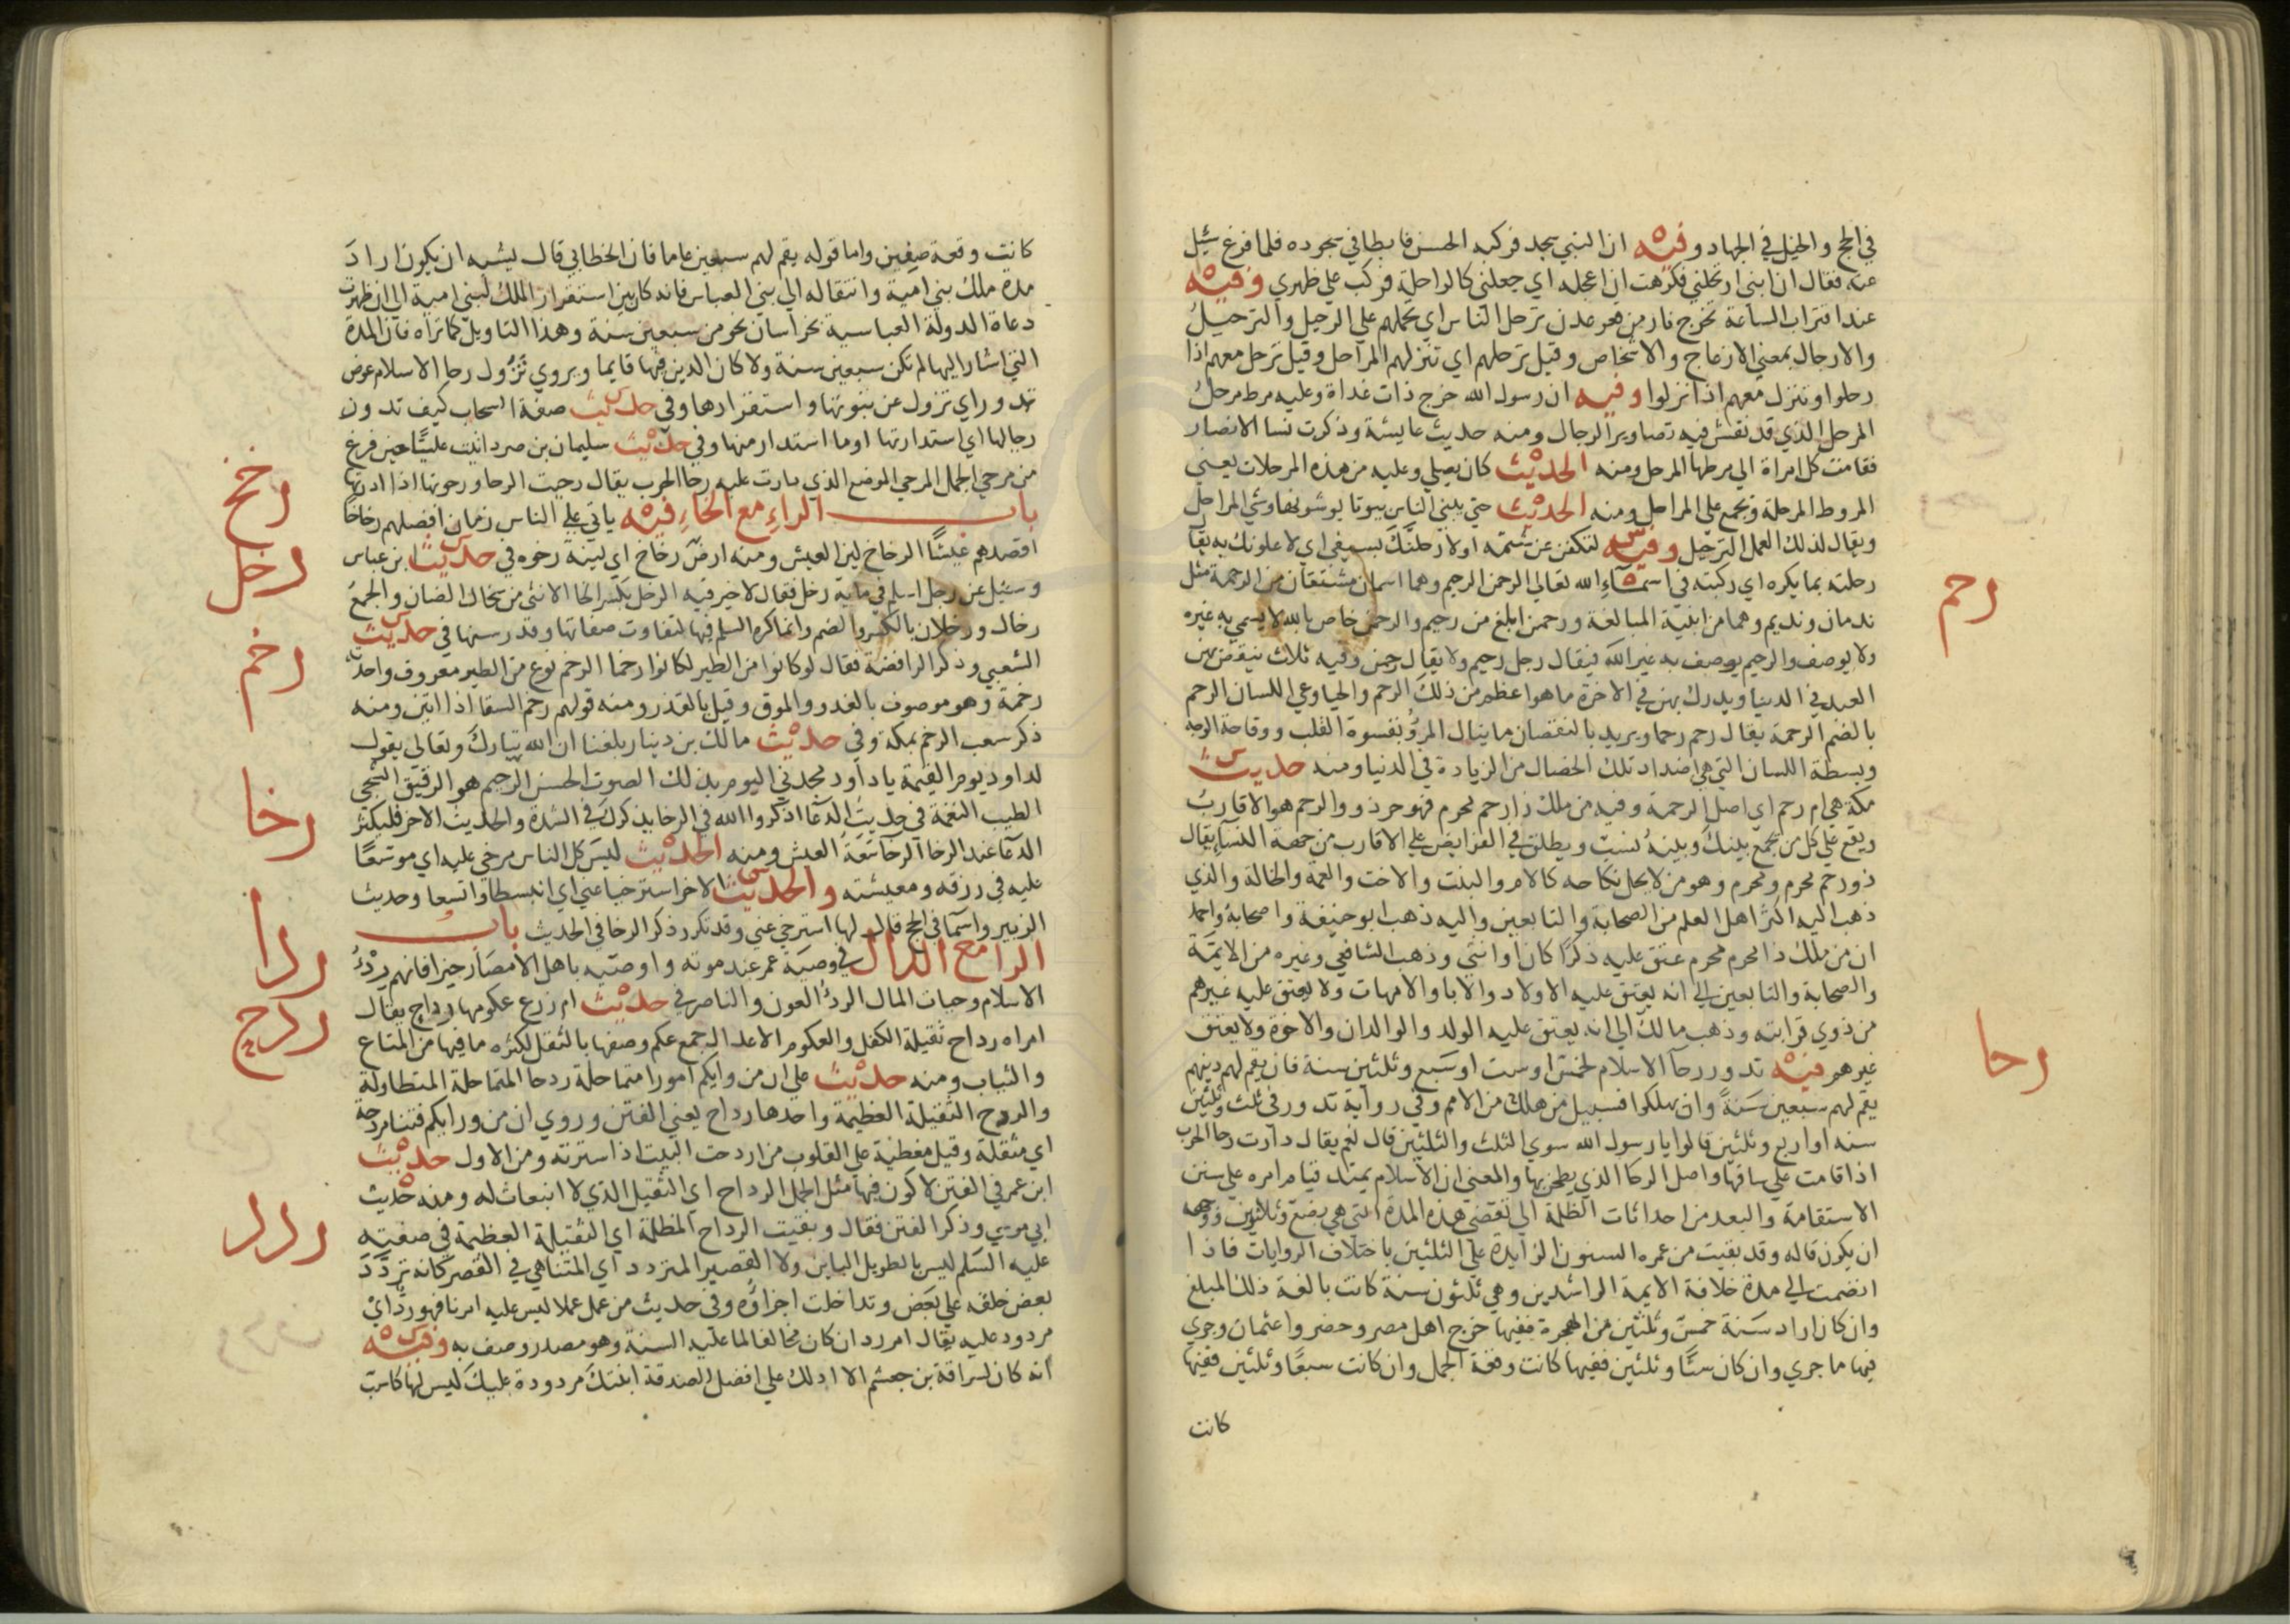 في الحج والخيل في الجهاد وفيه ان النبي سجد فركبه الحسن فابطا في سجوده فلما فرغ سئل
عنه فقال ان ابني ارتحلني فكرهت ان اعجله اي جعلني كالراحلة فركب علي ظهري وفيه
عند اقتراب الساعة تخرج نار من قعر عدن ترحل الناس اي تحملهم علي الرحيل والترحيل
والارحال بمعني الازعاج والاشخاص وقيل ترحلهم اي تنزلهم المراحل وقيل ترحل معهم اذا
رحلوا وتنزل معهم اذا نزلوا وفيه ان رسول الله خرج ذات غداة وعليه مرط مرحل
المرحل الذي قد نقش فيه تصاوير الرحال ومنه حديث عايشة وذكرت نسا الانصار
فقامت كل امراة الي مرطها المرحل ومنه الحديث كان يصلي وعليه من هذه المرحلات يعني
المروط المرحلة وتجمع علي المراحل ومنه الحديث حتي يبني الناس بيوتا يوشونها وشي المراحل
ويقال لذلك العمل الترحيل وفيه لتكفن عن شتمه اولا رحلنك بسيفي اي لا علونك به يقال
رحلته بما يكره اي ركبته في اسماء الله تعالي الرحمن الرحيم وهما اسمان مشتقان من الرحمة مثل
ندمان ونديم وهما من ابنية المبالغة ورحمن ابلغ من رحيم والرحمن خاص بالله لا يسمي به غيره
ولا يوصف والرحيم يوصف به غير الله فيقال رجل رحيم ولا يقال رحمن وفيه ثلاث ينقص بهن
العبد في الدنيا ويدرك بهن في الاخرة ما هو اعظم من ذلك الرحم والحيا وعي اللسان الرحم
بالضم الرحمة يقال رحم رحما ويريد بالنقصان ما ينال المرؤ بقسوة القلب ووقاحة الوجه
وبسطة اللسان التي هي اضداد تلك الخصال من الزيادة في الدنيا ومنه حديث
مكة هي ام رحم اي اصل الرحمة وفيه من ملك ذا رحم محرم فهو حر ذو والرحم هو الاقارب
ويقع علي كل من تجمع بينك وبينه نسب ويطلق في الفرايض علي الاقارب من جهة النساء يقال
ذو رحم محرم ومحرم وهو من لا يحل نكاحه كالام والبنت والاخت والعمة والخالة والذي
ذهب اليه اكثر اهل العلم من الصحابة والتابعين واليه ذهب ابو حنيفة واصحابه واحمد
ان من ملك ذا محرم محرم عتق عليه ذكرا كان او انثي وذهب الشافعي وغيره من الايمة
والصحابة والتابعين الي انه يعتق عليه الاولاد والابا والامهات ولا يعتق عليه غيرهم
من ذوي قرابته وذهب مالك الي انه يعتق عليه الولد والوالدان والاخوة ولا يعتق
غيرهم فيه تدور رحا الاسلام لخمس او ست او سبع وثلثين سنة فان يقم لهم دينهم
يقم لهم سبعين سنة وان يهلكوا فسبيل من هلك من الامم وفي رواية تدور في ثلث وثلثين
سنه او اربع وثلثين قالوا يا رسول الله سوي الثلث والثلثين قال نعم يقال دارت رحا الحرب
اذا قامت علي ساقها واصل الرحا الذي يطحن بها والمعني ان الاسلام يمتد قيام امره علي سنن
الاستقامة والبعد من احداثات الظلمة الي تقضي هذه المدة التي هي بضع وثلاثون ووجهه
ان يكون قاله وقد بقيت من عمره السنون الزايدة علي الثلثين باختلاف الروايات فاذا
انضمت الي مدة خلافة الايمة الراشدين وهي ثلثون سنة كانت بالغة ذلك المبلغ
وان كان اراد سنة خمس وثلثين من الهجرة ففيها خرج اهل مصر وحضروا عثمان وجري
فيها ما جري وان كان ستا وثلثين ففيها كانت وقعة الجمل وان كانت سبعا وثلثين ففيها
كانت
رحم
رحا
كانت وقعة صفين واما قوله يقم لهم سبعين عاما فان الخطابي قال يشبه ان يكون اراد
مدة ملك بني امية وانتقاله الي بني العباس فانه كان بين استقرار الملك لبني امية الي ان ظهرت
دعاة الدولة العباسية بخراسان نحو من سبعين سنة وهذا التاويل كما تراه فان المدة
التي اشار اليها لم تكن سبعين سنة ولا كان الدين فيها قايما ويروي تزول رحا الاسلام عوض
تدور اي تزول عن ثبوتها واستقرارها وفي حديث صفة السحاب كيف تدون
رحالها اي استدارتها او ما استدار منها وفي حديث سليمان بن صرد اتيت عليا حين فرغ
من مرحي الجمل المرحي الموضع الذي دارت عليه رحا الحرب يقال رحيت الرحا ورحوتها اذا ادرتها
باب الراء مع الخاء فيه ياتي علي الناس زمان افضلهم رخاخا
اقصدهم عيشا الرخاخ لين العيش ومنه ارض رخاخ اي لينة رخوه في حديث ابن عباس
وسئل عن رجل اسلم في ماية رخل فقال لا خير فيه الرخل بكسر الخا الانثي من سخال الضان والجمع
رخال ورخلان بالكسر والضم وانما كره السلم فيها لتفاوت صفاتها وقدر سنها في حديث
الشعبي وذكر الرافضة فقال لو كانوا من الطير لكانوا رخما الرخم نوع من الطير معروف واحدته
رخمة وهو موصوف بالغدر والموق وقيل بالقذر ومنه قولهم رخم السقا اذا انتن ومنه
ذكر شعب الرخم بمكة وفي حديث مالك بن دينار بلغنا ان الله تبارك وتعالي يقول
لداود يوم القيمة يا داود مجدني اليوم بذلك الصوت الحسن الرخيم هو الرقيق الشجي
الطيب النغمة في حديث الدعا اذكروا الله في الرخا يذكرك في الشدة والحديث الاخر فليكثر
الدعا عند الرخا الرخا سعة العيش ومنه الحديث ليس كل الناس مرخي عليه اي موسعا
عليه في رزقه ومعيشته والحديث الاخر استرخيا عني اي انبسطا واتسعا وحديث
الزبير واسما في الحج قال لها استرخي عني وقد تكرر ذكر الرخا في الحديث باب
الرا مع الدال في وصية عمر عند موته واوصيه باهل الامصار خيرا فانهم ردء
الاسلام وجباة المال الردء العون والناصر في حديث ام زرع عكومها رداح يقال
امراه رداح ثقيلة الكفل والعكوم الاعدال جمع عكم وصفها بالثقل لكثره ما فيها من المتاع
والثياب ومنه حديث علي ان من ورايكم امورا متماحلة ردحا المتماحلة المتطاولة
والردح الثقيلة العظيمة واحدها رداح يعني الفتن وروي ان من ورايكم فتنا مردحة
اي مثقلة وقيل مغطية علي القلوب من اردحت البيت اذا سترته ومن الاول حديث
ابن عمر في الفتن لا كون فيها مثل الجمل الرداح اي الثقيل الذي لا انبعاث له ومنه حديث
ابي موسي وذكر الفتن فقال وبقيت الرداح المظلمة اي الثقيلة العظيمة في صفته
عليه السلم ليس بالطويل الباين ولا القصير المتردد اي المتناهي في القصر كانه تردد
بعض خلقه علي بعض وتداخلت اجزاؤه وفي حديث من عمل عملا ليس عليه امرنا فهو رد اي
مردود عليه يقال امر رد ان كان مخالفا لما عليه السنة وهو مصدر وصف به وفيه
انه كان لسراقة بن جعشم الا ادلك علي افضل الصدقة ابنتك مردودة عليك ليس لها كاسب
رخخ
رخل
رخم
رخا
ردا
ردح
ردد